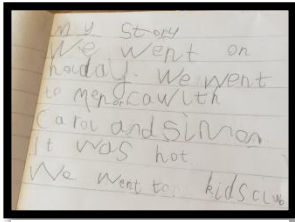 my Story
We went on
holiday. We went
to menorca with
Carol and simon
It was hot
We went to kidsclub